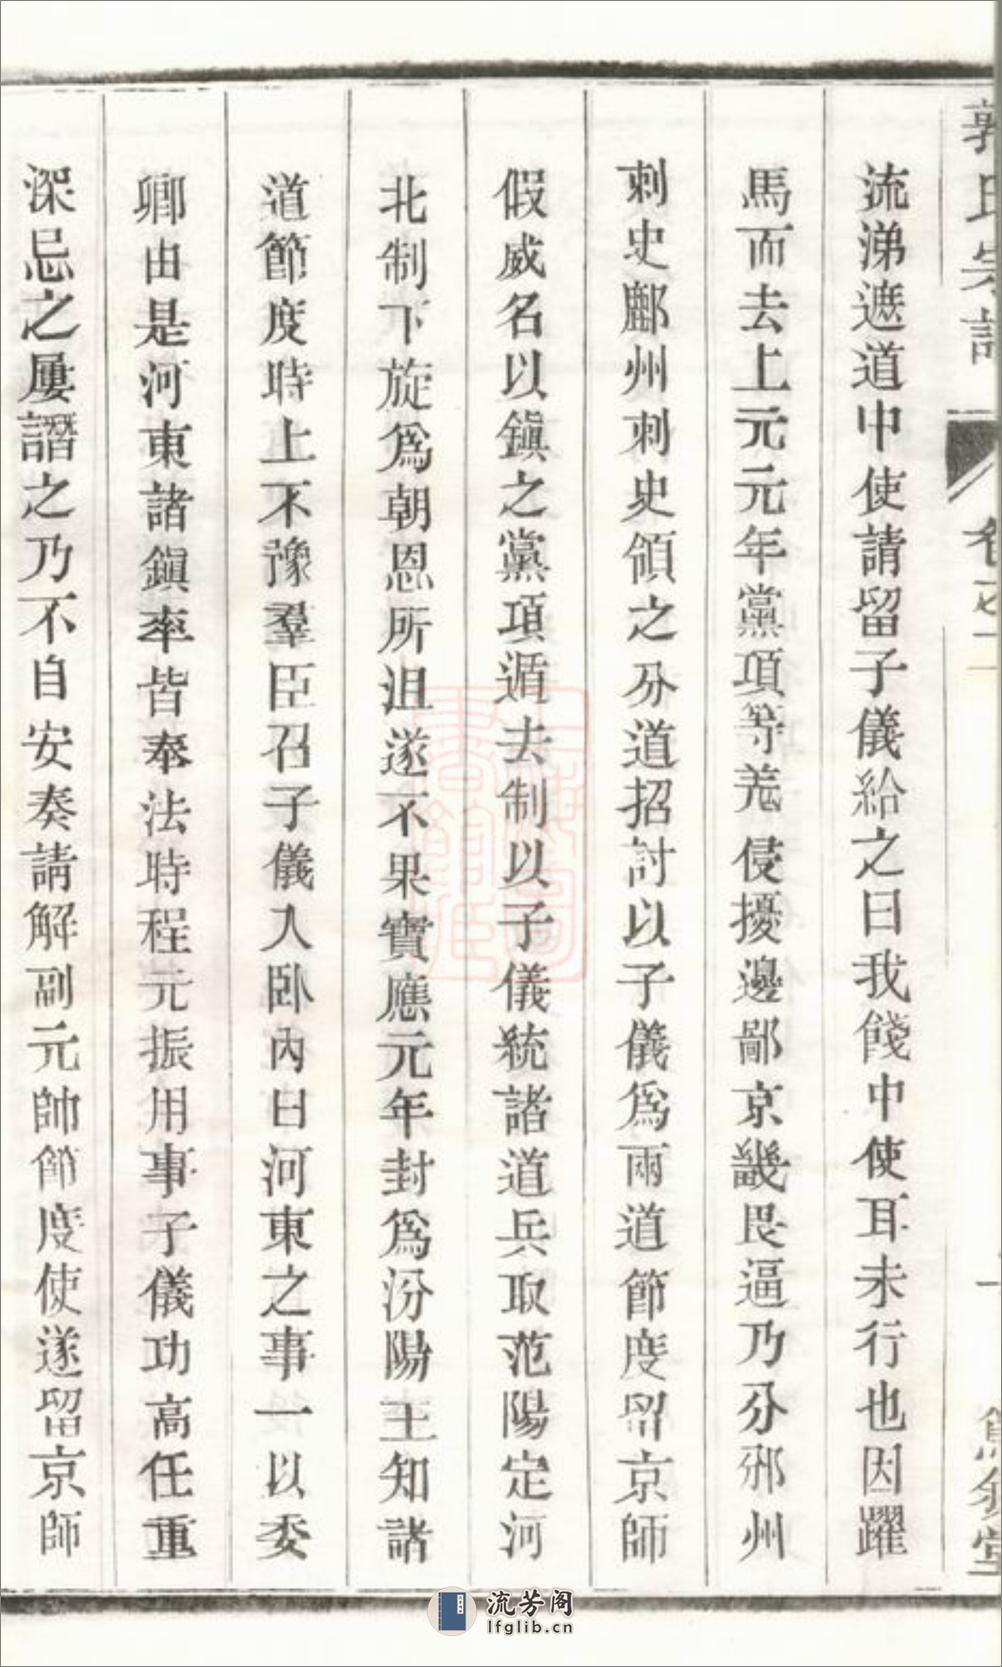 郭氏宗譜 卷之一 十
流涕遮道中使請留子儀紿之曰我餞中使耳未行也因躍
馬而去上元元年黨項等羌侵擾邊鄙京畿畏逼乃分邠州
刺史鄜州刺史領之分道招討以子儀爲兩道節度留京師
假威名以鎭之黨項遁去制以子儀統諸道兵取范陽定河
北制下旋爲朝恩所沮遂不果寶應元年封爲汾陽王知諸
道節度時上不豫羣臣召子儀入臥內曰河東之事一以委
卿由是河東諸鎭率皆奉法時程元振用事子儀功高任重
深忌之屢譖之乃不自安奏請解副元帥節度使遂留京師
流芳阁
lfglib.cn